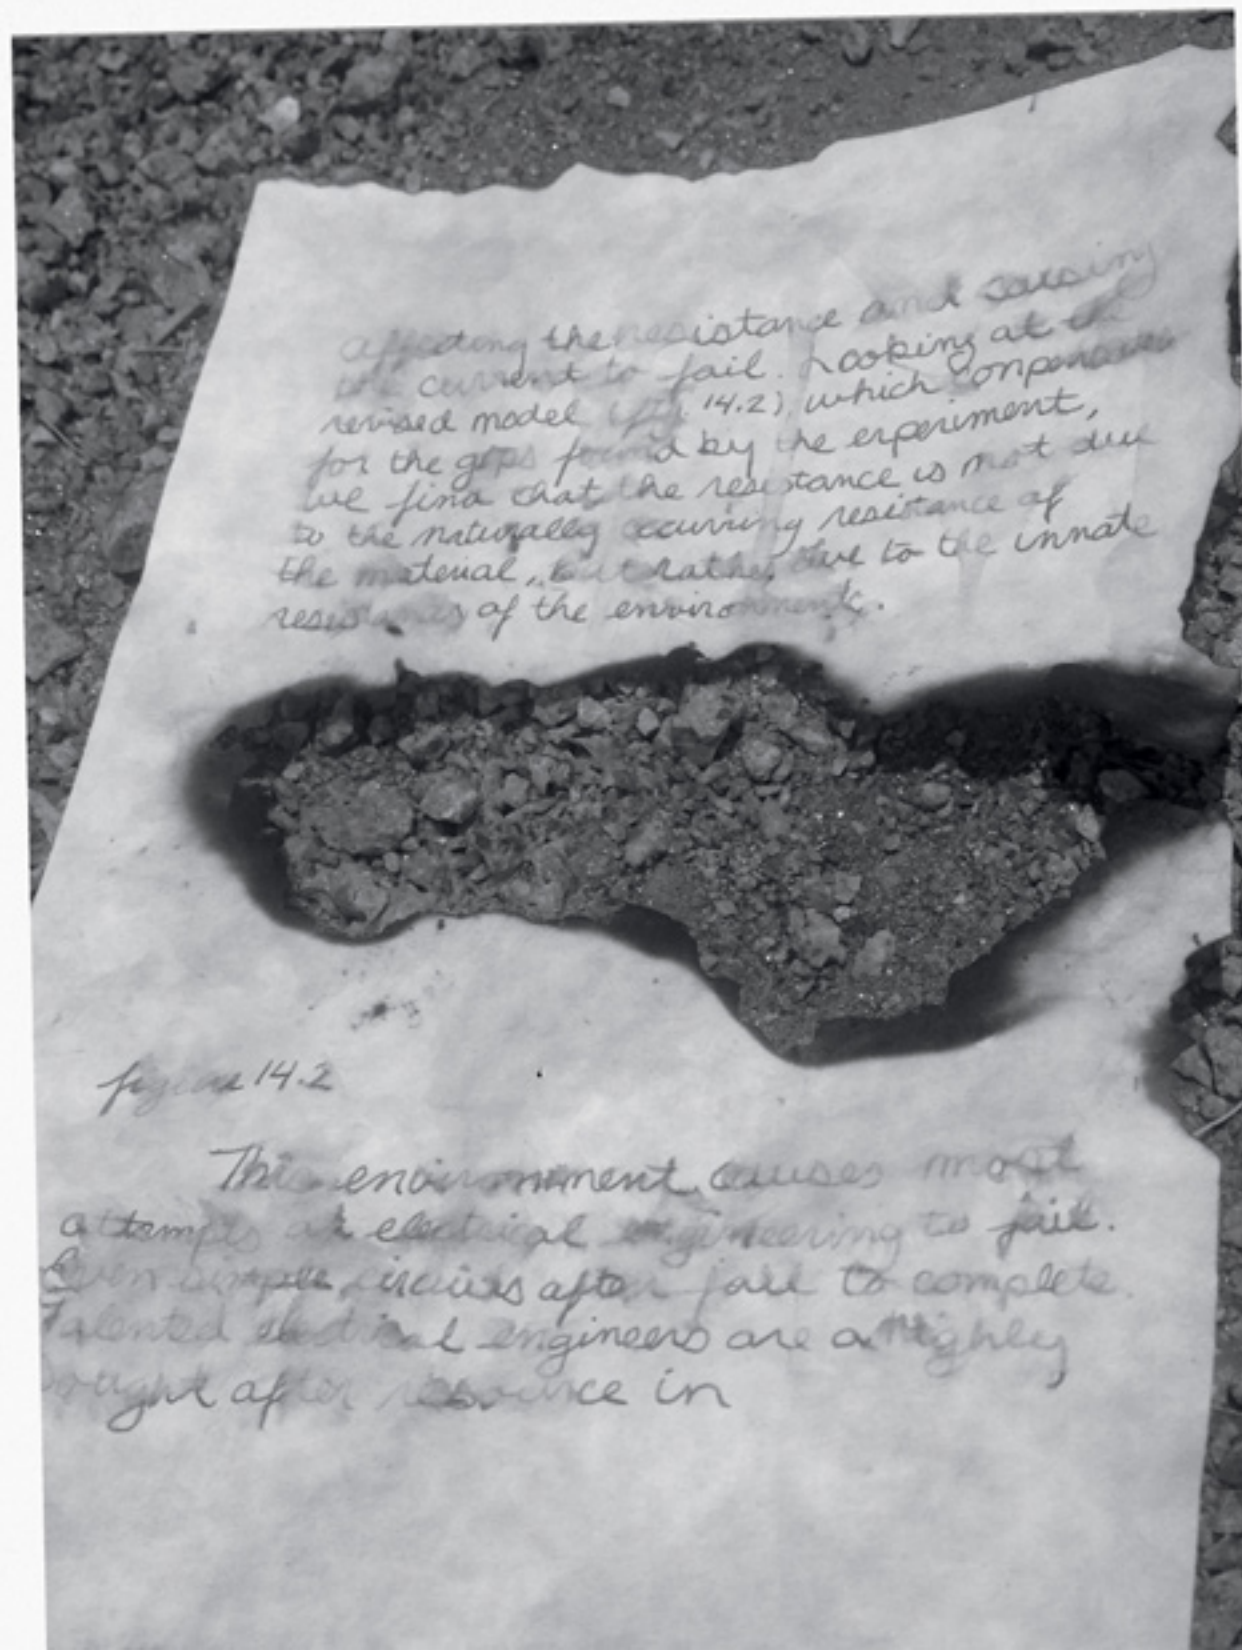 affecting the resistance and causing
the current to fail. Looking at the
revised model (fig. 14.2), which conpensates
for the gaps found by the experiment,
we find that the resistance is not due
to the naturally occurring resistance of
the material, but rather due to the innate
resistances of the environment.
figure 14.2
This environment causes most
attempts at electrical engineering to fail.
Even simple circuits often fail to complete.
Talented electrical engineers are a highly
sought after resource in